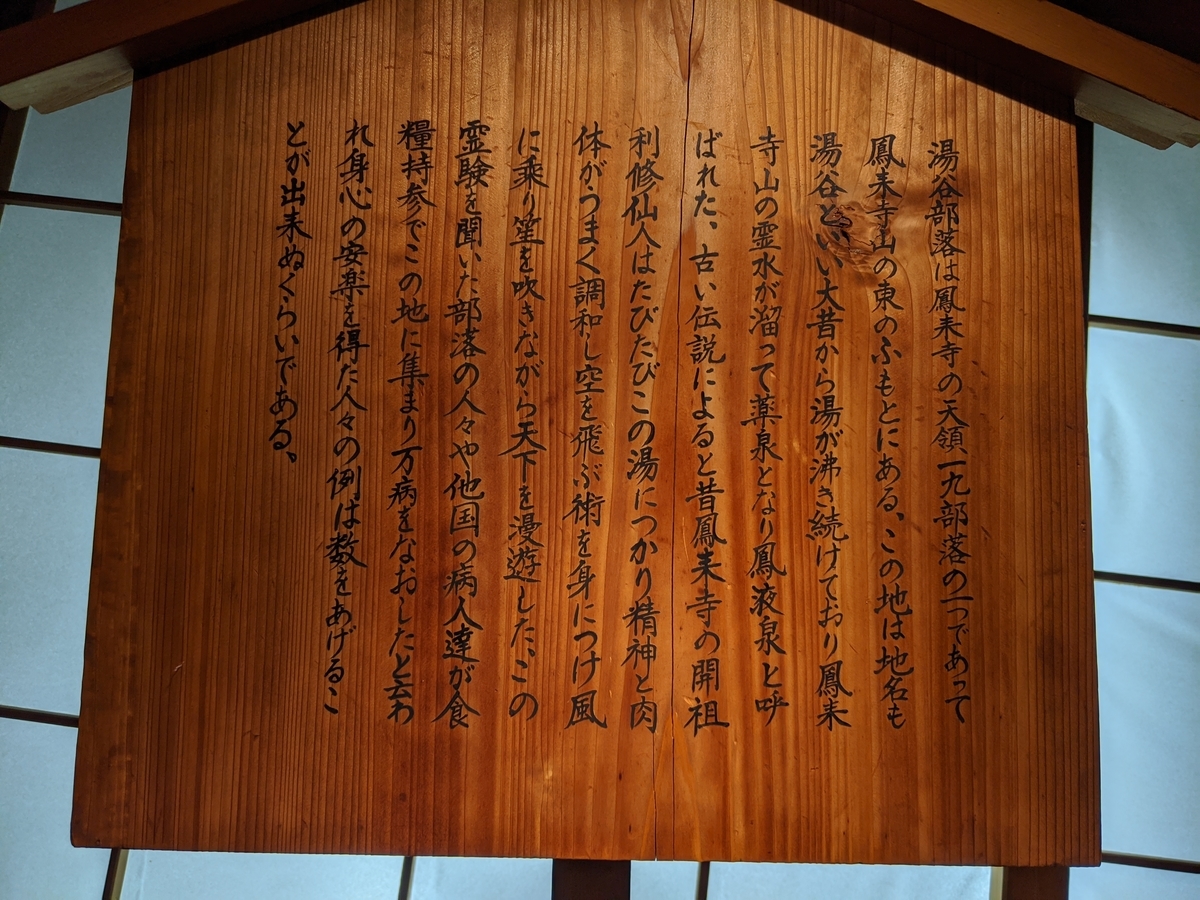 湯谷部落は鳳来寺の天領一九部落の一つであって
鳳来寺山の東のふもとにある、この地は地名も
湯谷といい大昔から湯が沸き続けており鳳来
寺山の霊水が溜って薬泉となり鳳液泉と呼
ばれた、古い伝説によると昔鳳来寺の開祖
利修仙人はたびたびこの湯につかり精神と肉
体がうまく調和し空を飛ぶ術を身につけ風
に乗り笙を吹きながら天下を漫遊した、この
霊験を聞いた部落の人々や他国の病人達が食
糧持参でこの地に集まり万病をなおしたと云わ
れ身心の安楽を得た人々の例は数をあげるこ
とが出来ぬくらいである、